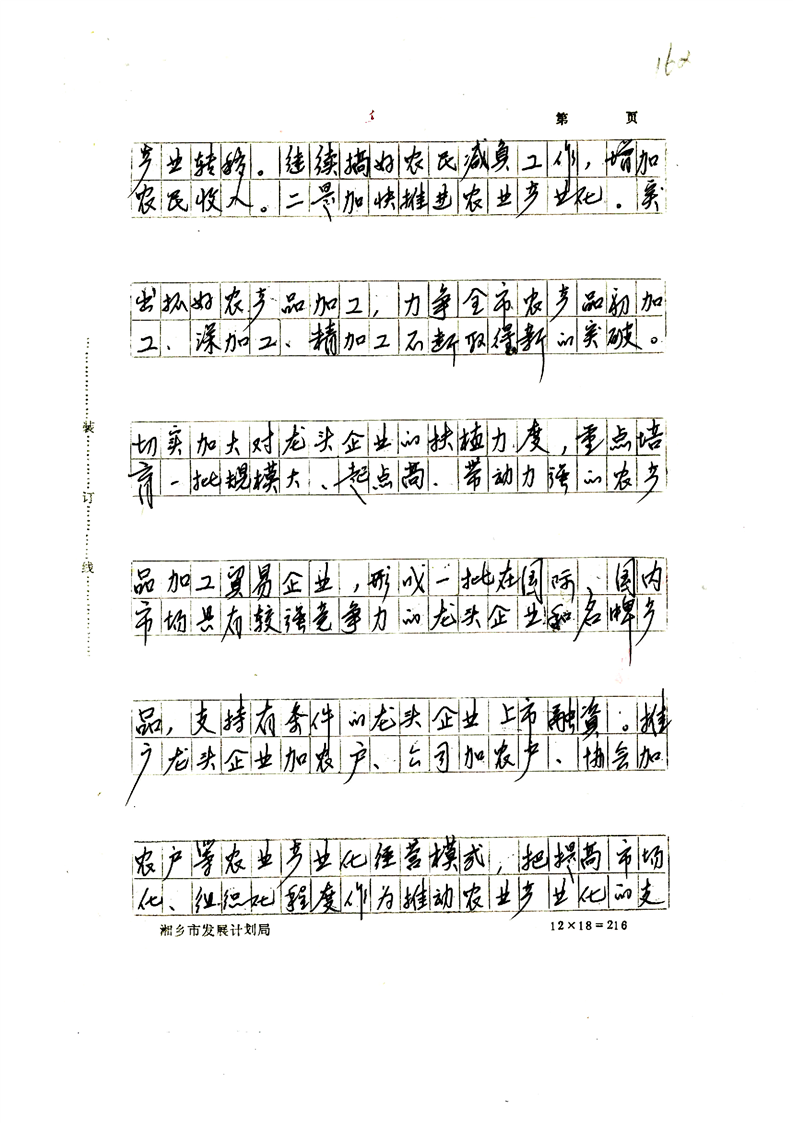 第 页
产业转移。继续搞好农民减负工作，增加
农民收入。二是加快推进农业产业化。突
出抓好农产品加工，力争全市农产品初加
工、深加工、精加工不断取得新的突破。
切实加大对龙头企业的扶植力度，重点培
育一批规模大、起点高、带动力强的农产
品加工贸易企业，形成一批在国际、国内
市场具有较强竞争力的龙头企业和名牌产
品，支持有条件的龙头企业上市融资。推
广龙头企业加农户、公司加农户、协会加
农户等农业产业化经营模式，把提高市场
化、组织化程度作为推动农业产业化的支
湘乡市发展计划局 12×18=216
装订线